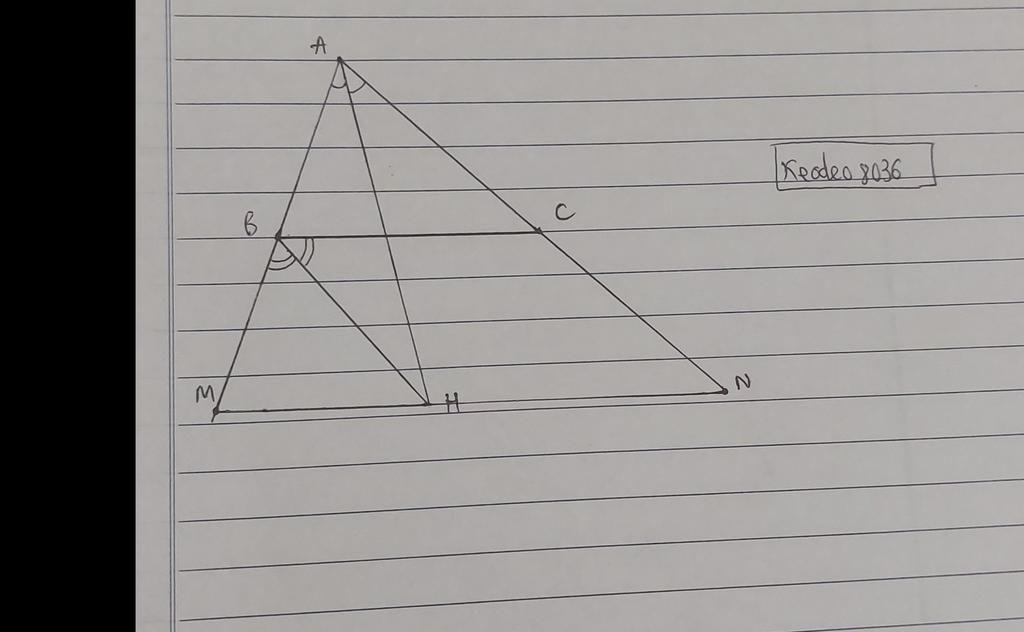 A
B
C
Keodeo 8036
M
H
N